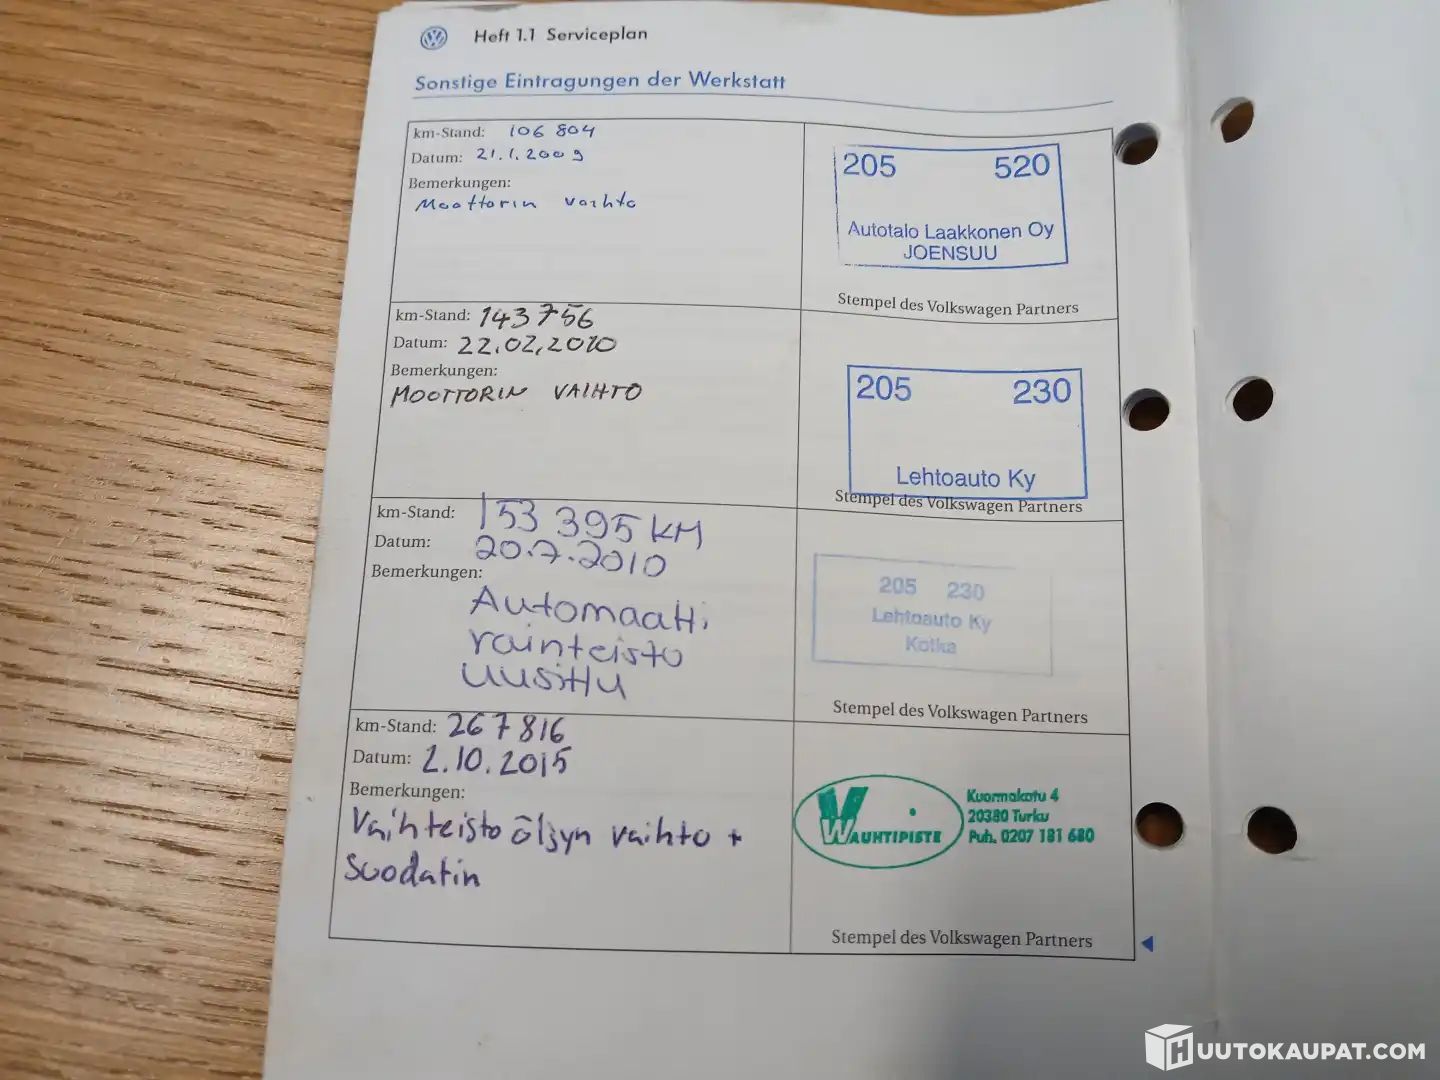 Heft 1.1 Serviceplan
Sonstige Eintragungen der Werkstatt
km-Stand: 106 804
Datum: 21.1.2009
Bemerkungen:
Moottorin vaihto
205 520
Autotalo Laakkonen Oy
JOENSUU
Stempel des Volkswagen Partners
km-Stand: 143756
Datum: 22.02.2010
Bemerkungen:
MOOTTORIN VAIHTO
205 230
Lehtoauto Ky
Stempel des Volkswagen Partners
km-Stand: 153 395 KM
Datum: 20.7.2010
Bemerkungen:
Automaatti
vainteisto
uusittu
205 230
Lehtoauto Ky
Kotka
Stempel des Volkswagen Partners
km-Stand: 267816
Datum: 2.10.2015
Bemerkungen:
Vaihteisto öljyn vaihto +
Suodatin
VW
WAUHTIPISTE
Kuormakatu 4
20380 Turku
Puh. 0207 181 680
Stempel des Volkswagen Partners
HUUTOKAUPAT.COM